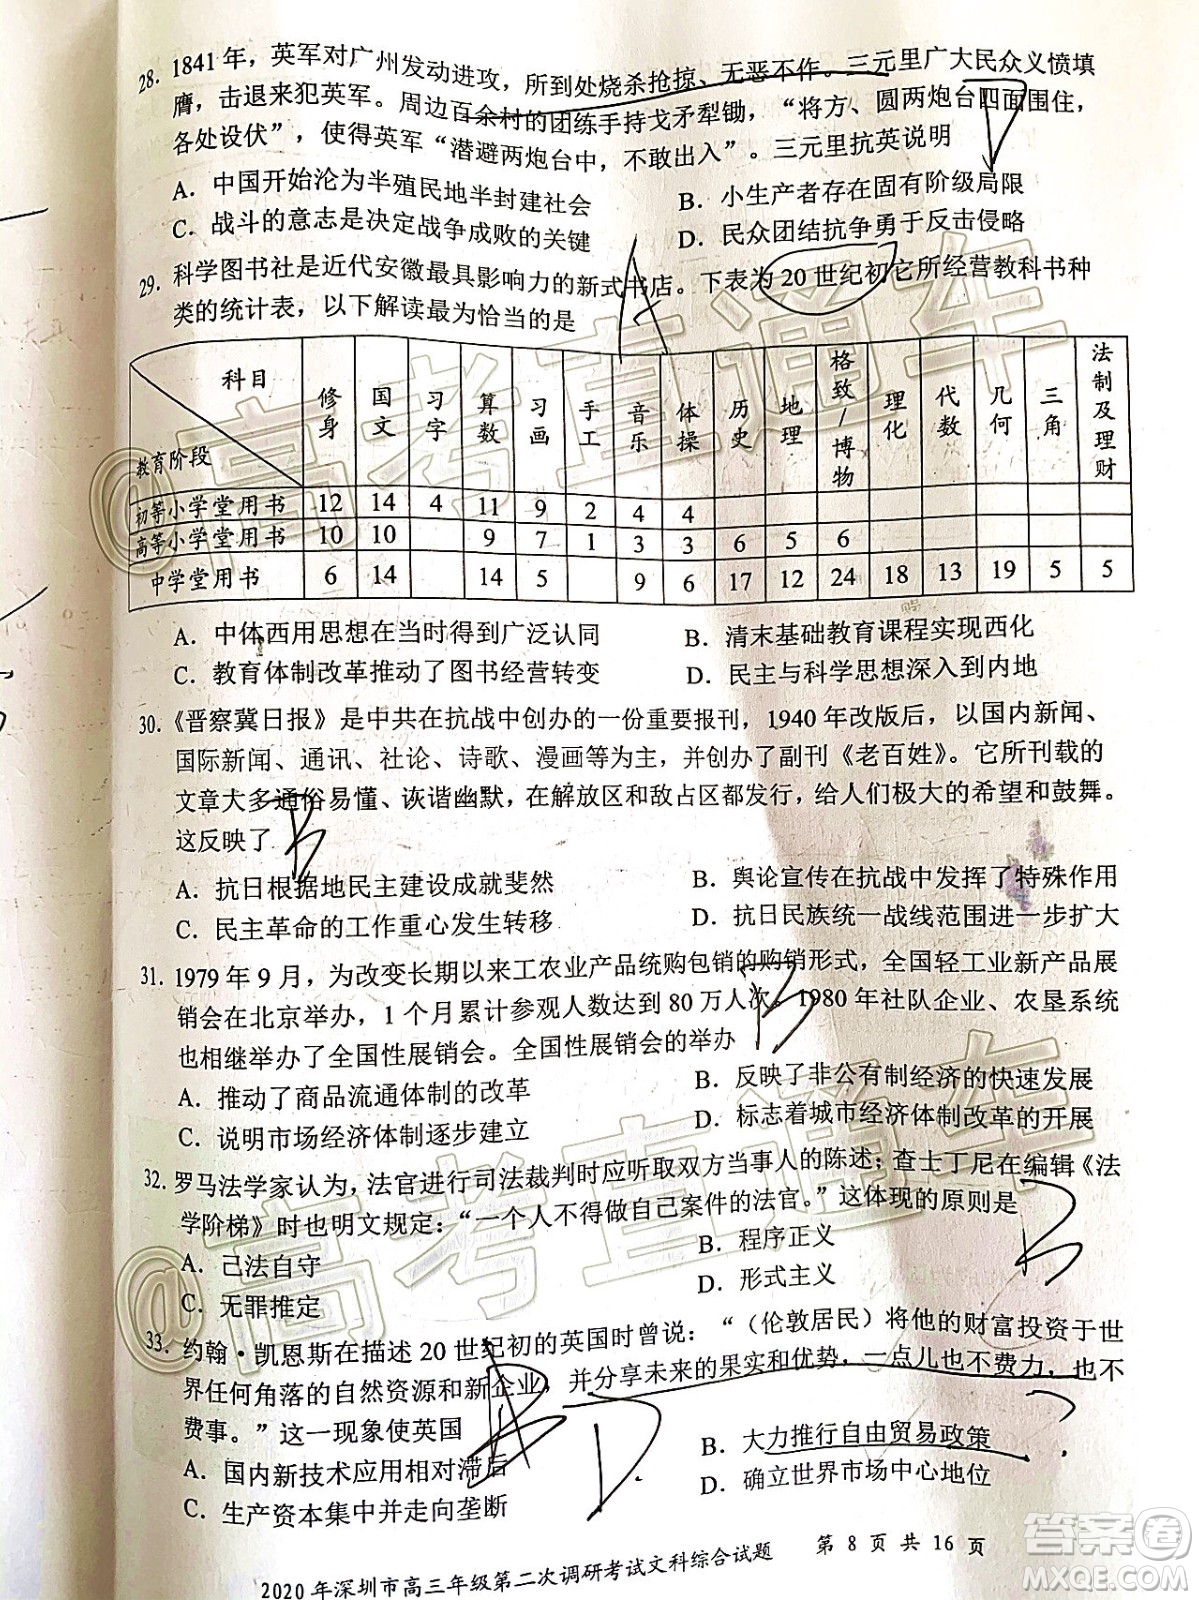 28. 1841年，英军对广州发动进攻，所到处烧杀抢掠、无恶不作。三元里广大民众义愤填
膺，击退来犯英军。周边百余村的团练手持戈矛犁锄，“将方、圆两炮台四面围住，
各处设伏”，使得英军“潜避两炮台中，不敢出入”。三元里抗英说明
A．中国开始沦为半殖民地半封建社会 B．小生产者存在固有阶级局限
C．战斗的意志是决定战争成败的关键 D．民众团结抗争勇于反击侵略
29. 科学图书社是近代安徽最具影响力的新式书店。下表为20世纪初它所经营教科书种
类的统计表，以下解读最为恰当的是
科目 教育阶段 修身 国文 习字 算数 习画 手工 音乐 体操 历史 地理 格致/博物 理化 代数 几何 三角 法制及理财
初等小学堂用书 12 14 4 11 9 2 4 4
高等小学堂用书 10 10 9 7 1 3 3 6 5 6
中学堂用书 6 14 14 5 9 6 17 12 24 18 13 19 5 5
A．中体西用思想在当时得到广泛认同 B．清末基础教育课程实现西化
C．教育体制改革推动了图书经营转变 D．民主与科学思想深入到内地
30. 《晋察冀日报》是中共在抗战中创办的一份重要报刊，1940年改版后，以国内新闻、
国际新闻、通讯、社论、诗歌、漫画等为主，并创办了副刊《老百姓》。它所刊载的
文章大多通俗易懂、诙谐幽默，在解放区和敌占区都发行，给人们极大的希望和鼓舞。
这反映了
A．抗日根据地民主建设成就斐然 B．舆论宣传在抗战中发挥了特殊作用
C．民主革命的工作重心发生转移 D．抗日民族统一战线范围进一步扩大
31. 1979年9月，为改变长期以来工农业产品统购包销的购销形式，全国轻工业新产品展
销会在北京举办，1个月累计参观人数达到80万人次。1980年社队企业、农垦系统
也相继举办了全国性展销会。全国性展销会的举办
A．推动了商品流通体制的改革 B．反映了非公有制经济的快速发展
C．说明市场经济体制逐步建立 D．标志着城市经济体制改革的开展
32. 罗马法学家认为，法官进行司法裁判时应听取双方当事人的陈述；查士丁尼在编辑《法
学阶梯》时也明文规定：“一个人不得做自己案件的法官。”这体现的原则是
A．己法自守 B．程序正义
C．无罪推定 D．形式主义
33. 约翰·凯恩斯在描述20世纪初的英国时曾说：“（伦敦居民）将他的财富投资于世
界任何角落的自然资源和新企业，并分享未来的果实和优势，一点儿也不费力，也不
费事。”这一现象使英国
A．国内新技术应用相对滞后 B．大力推行自由贸易政策
C．生产资本集中并走向垄断 D．确立世界市场中心地位
2020年深圳市高三年级第二次调研考试文科综合试题 第8页共16页
D
A
B
B
B
B
D
@高考直通车
@高考直通车
答案圈
MXQE.COM